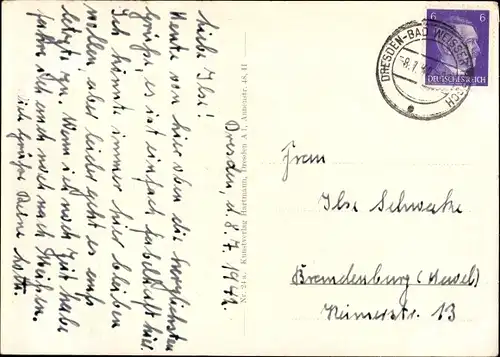 Dresden, d. 8.7.1942.
Liebe Ilse!
Heute von hier oben die herzlichsten
Grüße, es ist einfach fabelhaft hier.
Ich könnte immer hier bleiben
wollen, aber leider geht es ans
letzte ran. Wenn ich noch Zeit habe
fahre ich auch noch nach Meißen.
viele Grüße Deine Lotte.
Nr. 24 a. Kunstverlag Hartmann, Dresden A 1, Annenstr. 48, II
DRESDEN-BAD WEISSER HIRSCH
-8.7.42
6 6
DEUTSCHES REICH
Frau
Ilse Schwarke
Brandenburg (Havel)
13